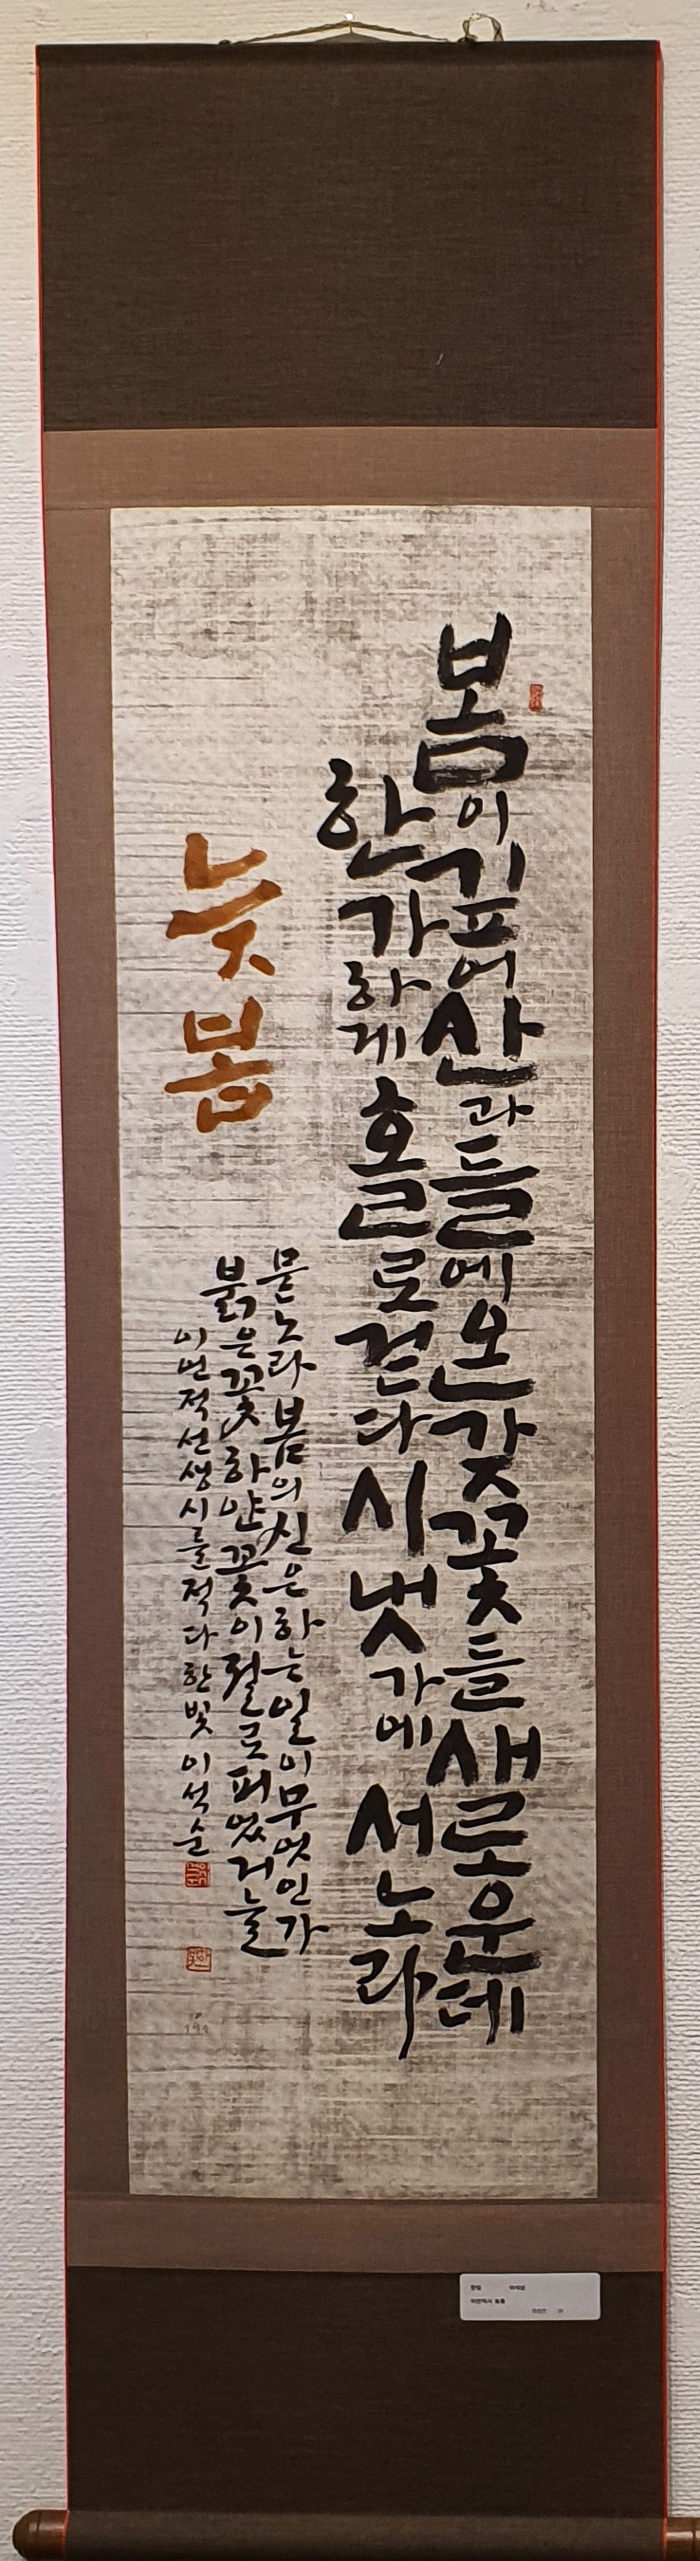 봄이깊어산과들에온갖꽃들새로운데
한가하게홀로걷다시냇가에서노라
늦봄
묻노라봄의신은하는일이무엇인가
붉은꽃하얀꽃이절로피었거늘
이언적선생시를적다한빛이석순